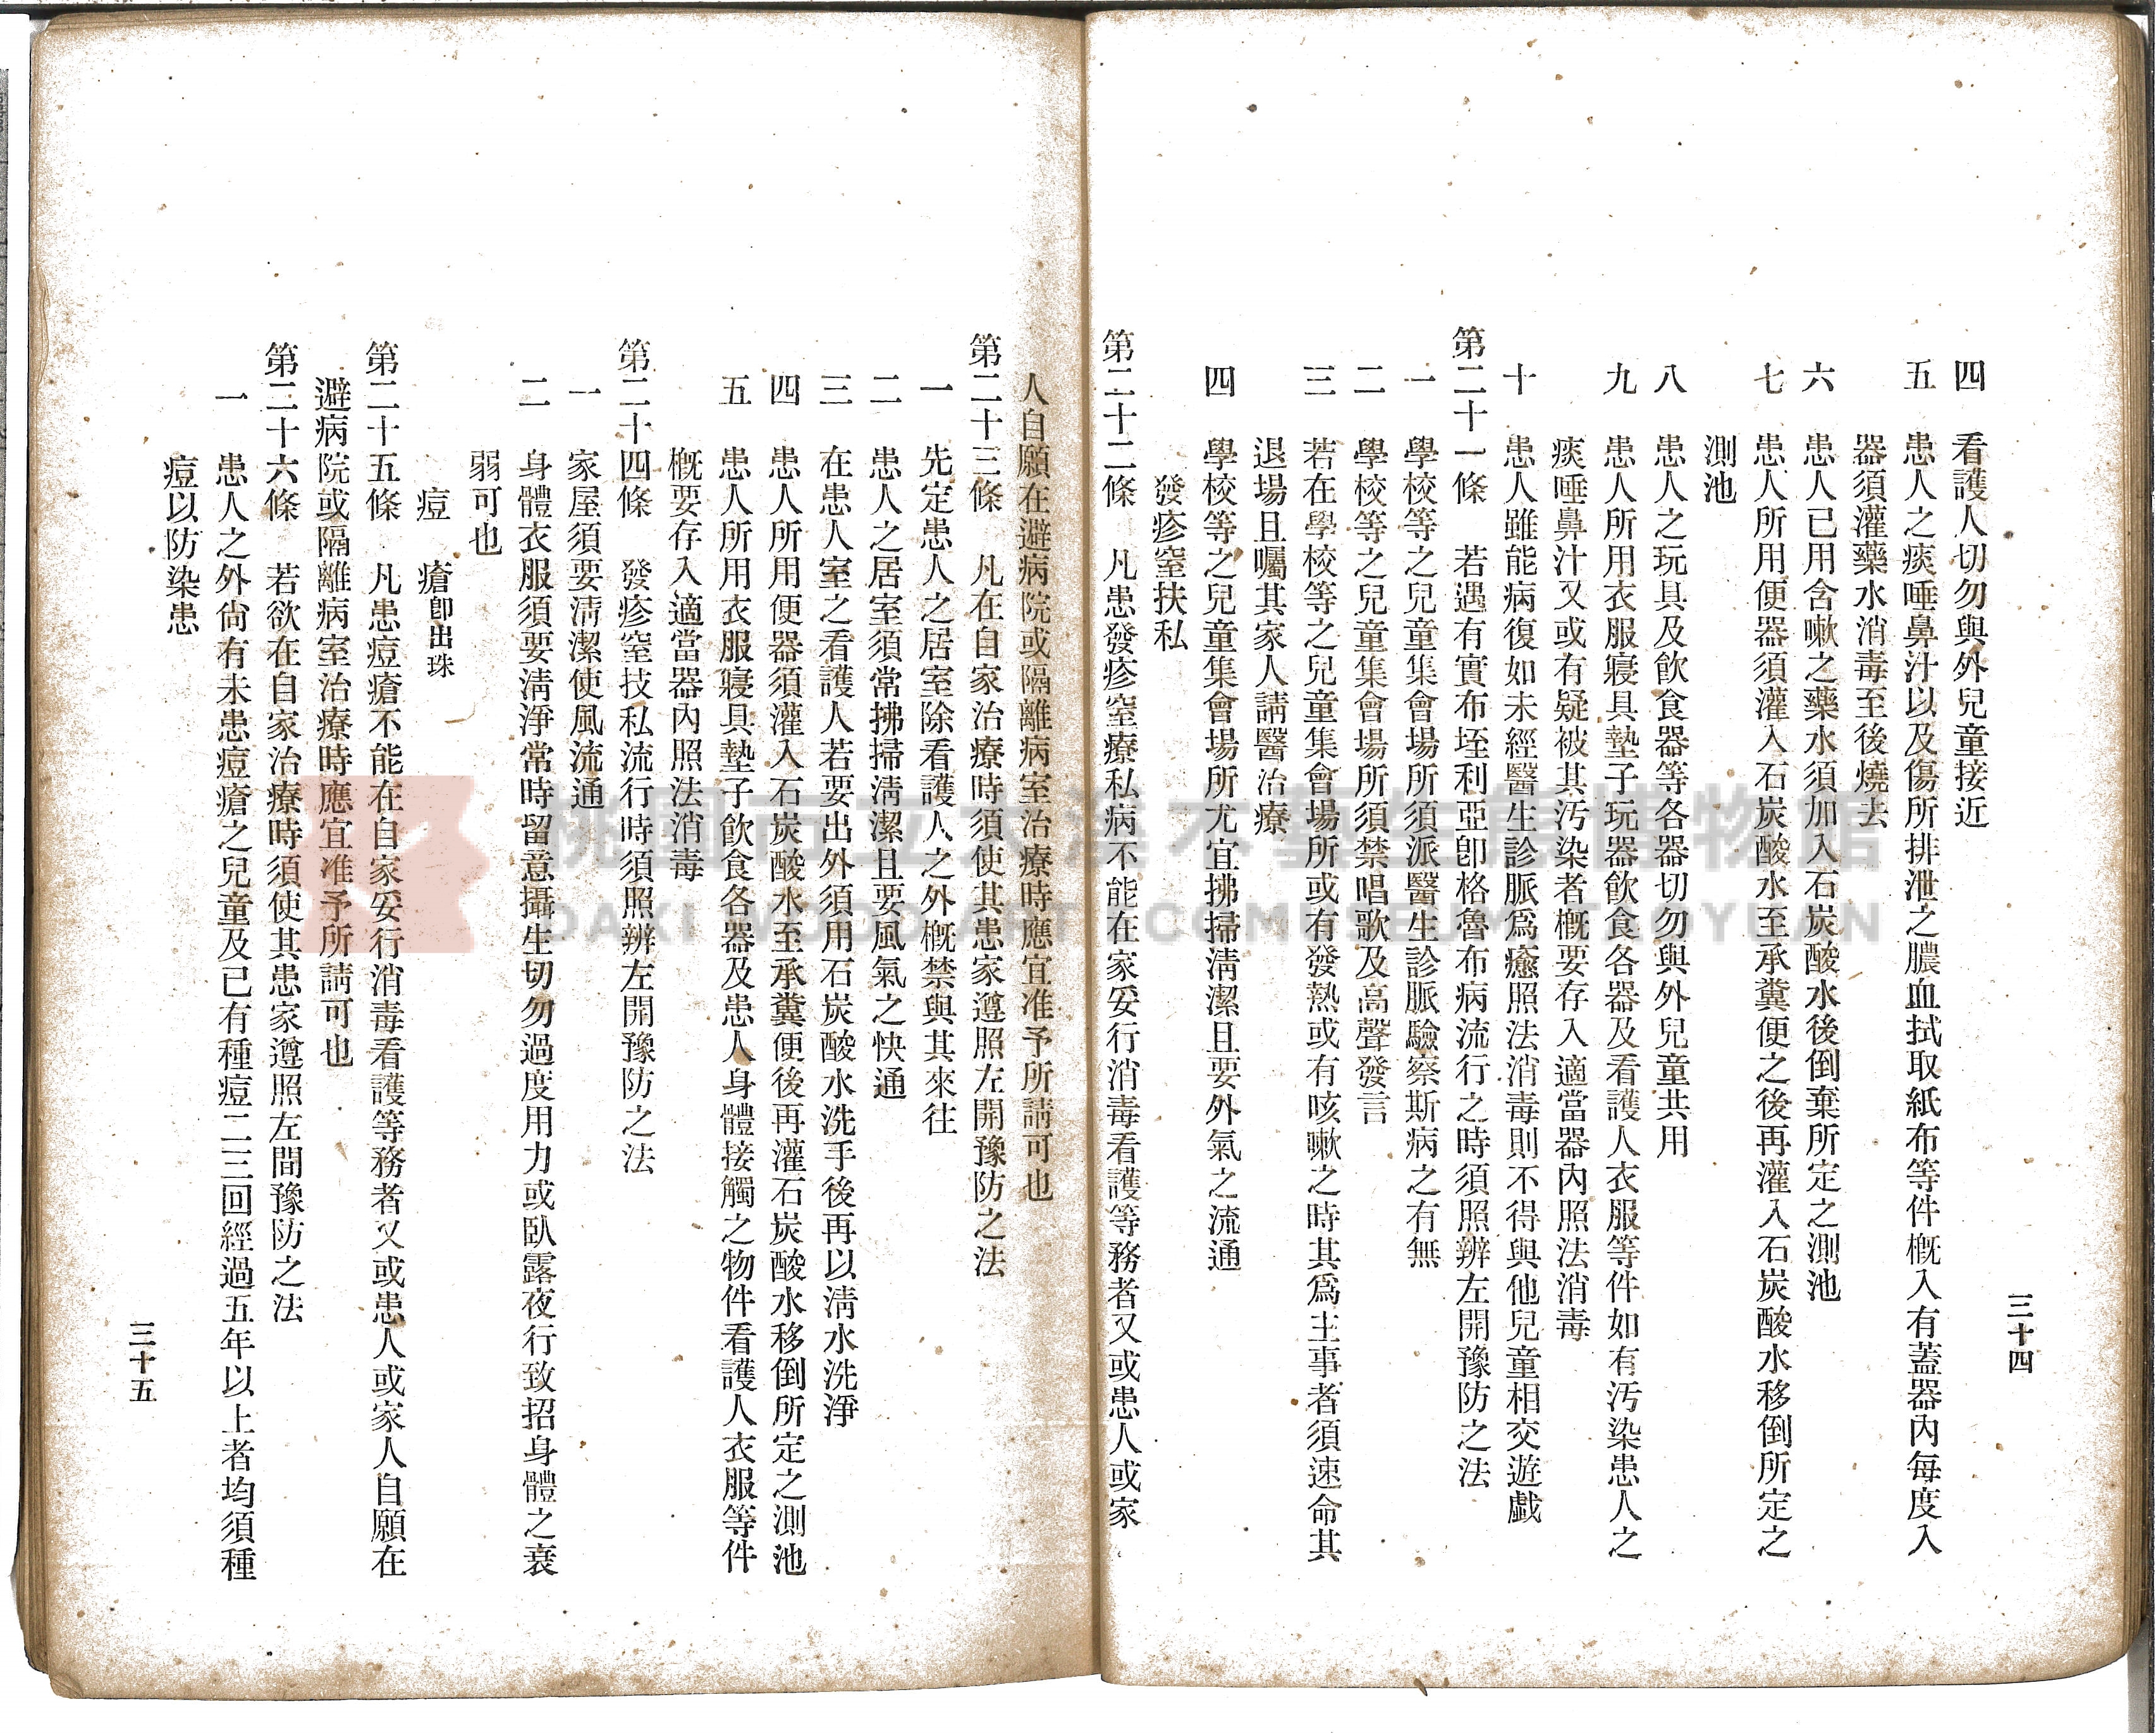 三十四
四　看護人切勿與外兒童接近
五　患人之痰唾鼻汁以及傷所排泄之膿血拭取紙布等件概入有蓋器內每度入
器須灌藥水消毒至後燒去
六　患人已用含嗽之藥水須加入石炭酸水後倒棄所定之測池
七　患人所用便器須灌入石炭酸水至承糞便之後再灌入石炭酸水移倒所定之
測池
八　患人之玩具及飲食器等各器切勿與外兒童共用
九　患人所用衣服寢具墊子玩器飲食各器及看護人衣服等件如有汚染患人之
痰唾鼻汁又或有疑被其汚染者概要存入適當器內照法消毒
十　患人雖能病復如未經醫生診脈爲癒照法消毒則不得與他兒童相交遊戱
第二十一條　若遇有實布垤利亞卽格魯布病流行之時須照辨左開豫防之法
一　學校等之兒童集會場所須派醫生診脈驗察斯病之有無
二　學校等之兒童集會場所須禁唱歌及高聲發言
三　若在學校等之兒童集會場所或有發熱或有咳嗽之時其爲主事者須速命其
退場且囑其家人請醫治療
四　學校等之兒童集會場所尤宜拂掃淸潔且要外氣之流通
發疹窒扶私
第二十二條　凡患發疹窒療私病不能在家妥行消毒看護等務者又或患人或家
人自願在避病院或隔離病室治療時應宜准予所請可也
第二十三條　凡在自家治療時須使其患家遵照左開豫防之法
一　先定患人之居室除看護人之外概禁與其來往
二　患人之居室須常拂掃淸潔且要風氣之快通
三　在患人室之看護人若要出外須用石炭酸水洗手後再以淸水洗淨
四　患人所用便器須灌入石炭酸水至承糞便後再灌石炭酸水移倒所定之測池
五　患人所用衣服寢具墊子飲食各器及患人身體接觸之物件看護人衣服等件
概要存入適當器內照法消毒
第二十四條　發疹窒技私流行時須照辨左開豫防之法
一　家屋須要淸潔使風流通
二　身體衣服須要淸淨常時留意攝生切勿過度用力或臥露夜行致招身體之衰
弱可也
痘　瘡卽出珠
第二十五條　凡患痘瘡不能在自家妥行消毒看護等務者又或患人或家人自願在
避病院或隔離病室治療時應宜准予所請可也
第二十六條　若欲在自家治療時須使其患家遵照左間豫防之法
一　患人之外尙有未患痘瘡之兒童及已有種痘二三回經過五年以上者均須種
痘以防染患
三十五
桃園市立大溪木藝生態博物館
DAXI WOOD ART ECOMUSEUM, TAOYUAN